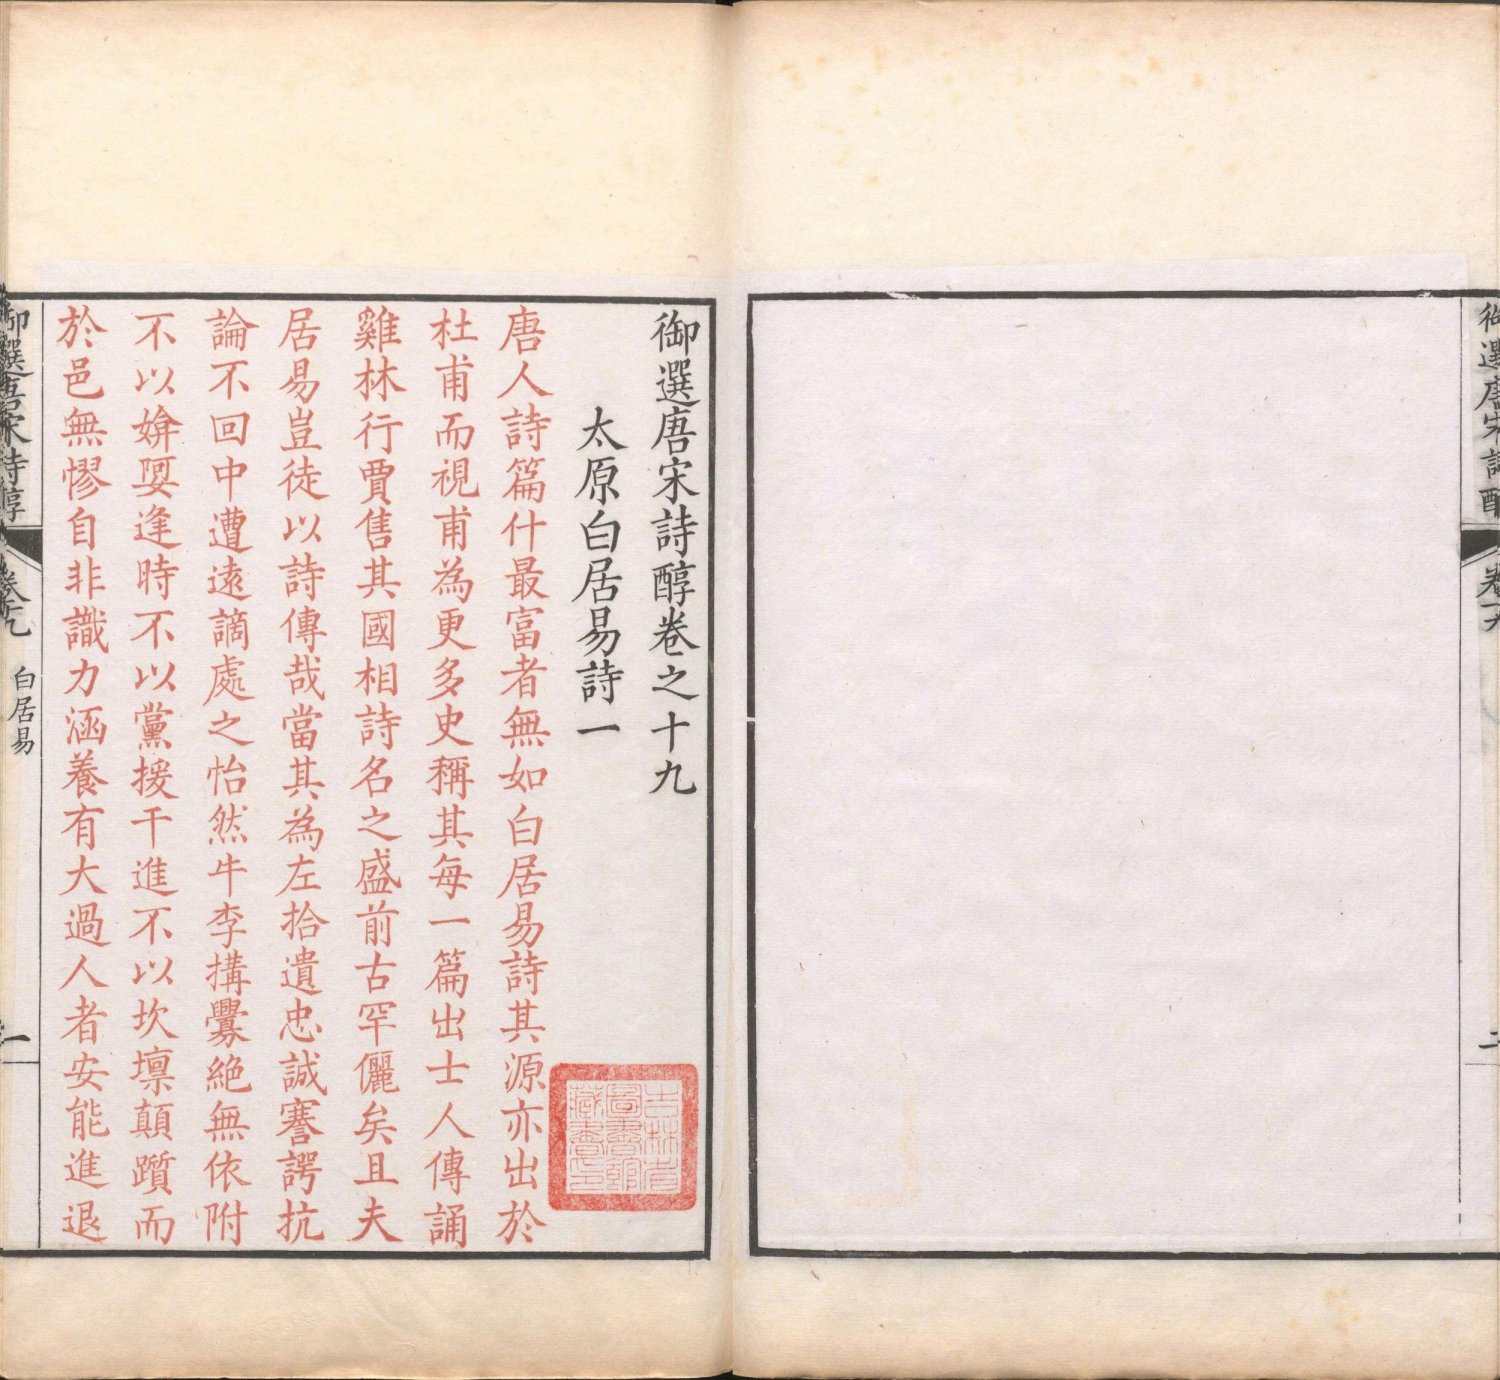 御選唐宋詩醇卷之十九
太原白居易詩一
唐人詩篇什最富者無如白居易詩其源亦出於
杜甫而視甫為更多史稱其每一篇出士人傳誦
雞林行賈售其國相詩名之盛前古罕儷矣且夫
居易豈徒以詩傳哉當其為左拾遺忠誠謇諤抗
論不回中遭遠謫處之怡然牛李搆釁絕無依附
不以媕婀逢時不以黨援干進不以坎壈顛躓而
於邑無憀自非識力涵養有大過人者安能進退
吉林省
圖書館
藏書印
御選唐宋詩醇
卷十九
白居易
一